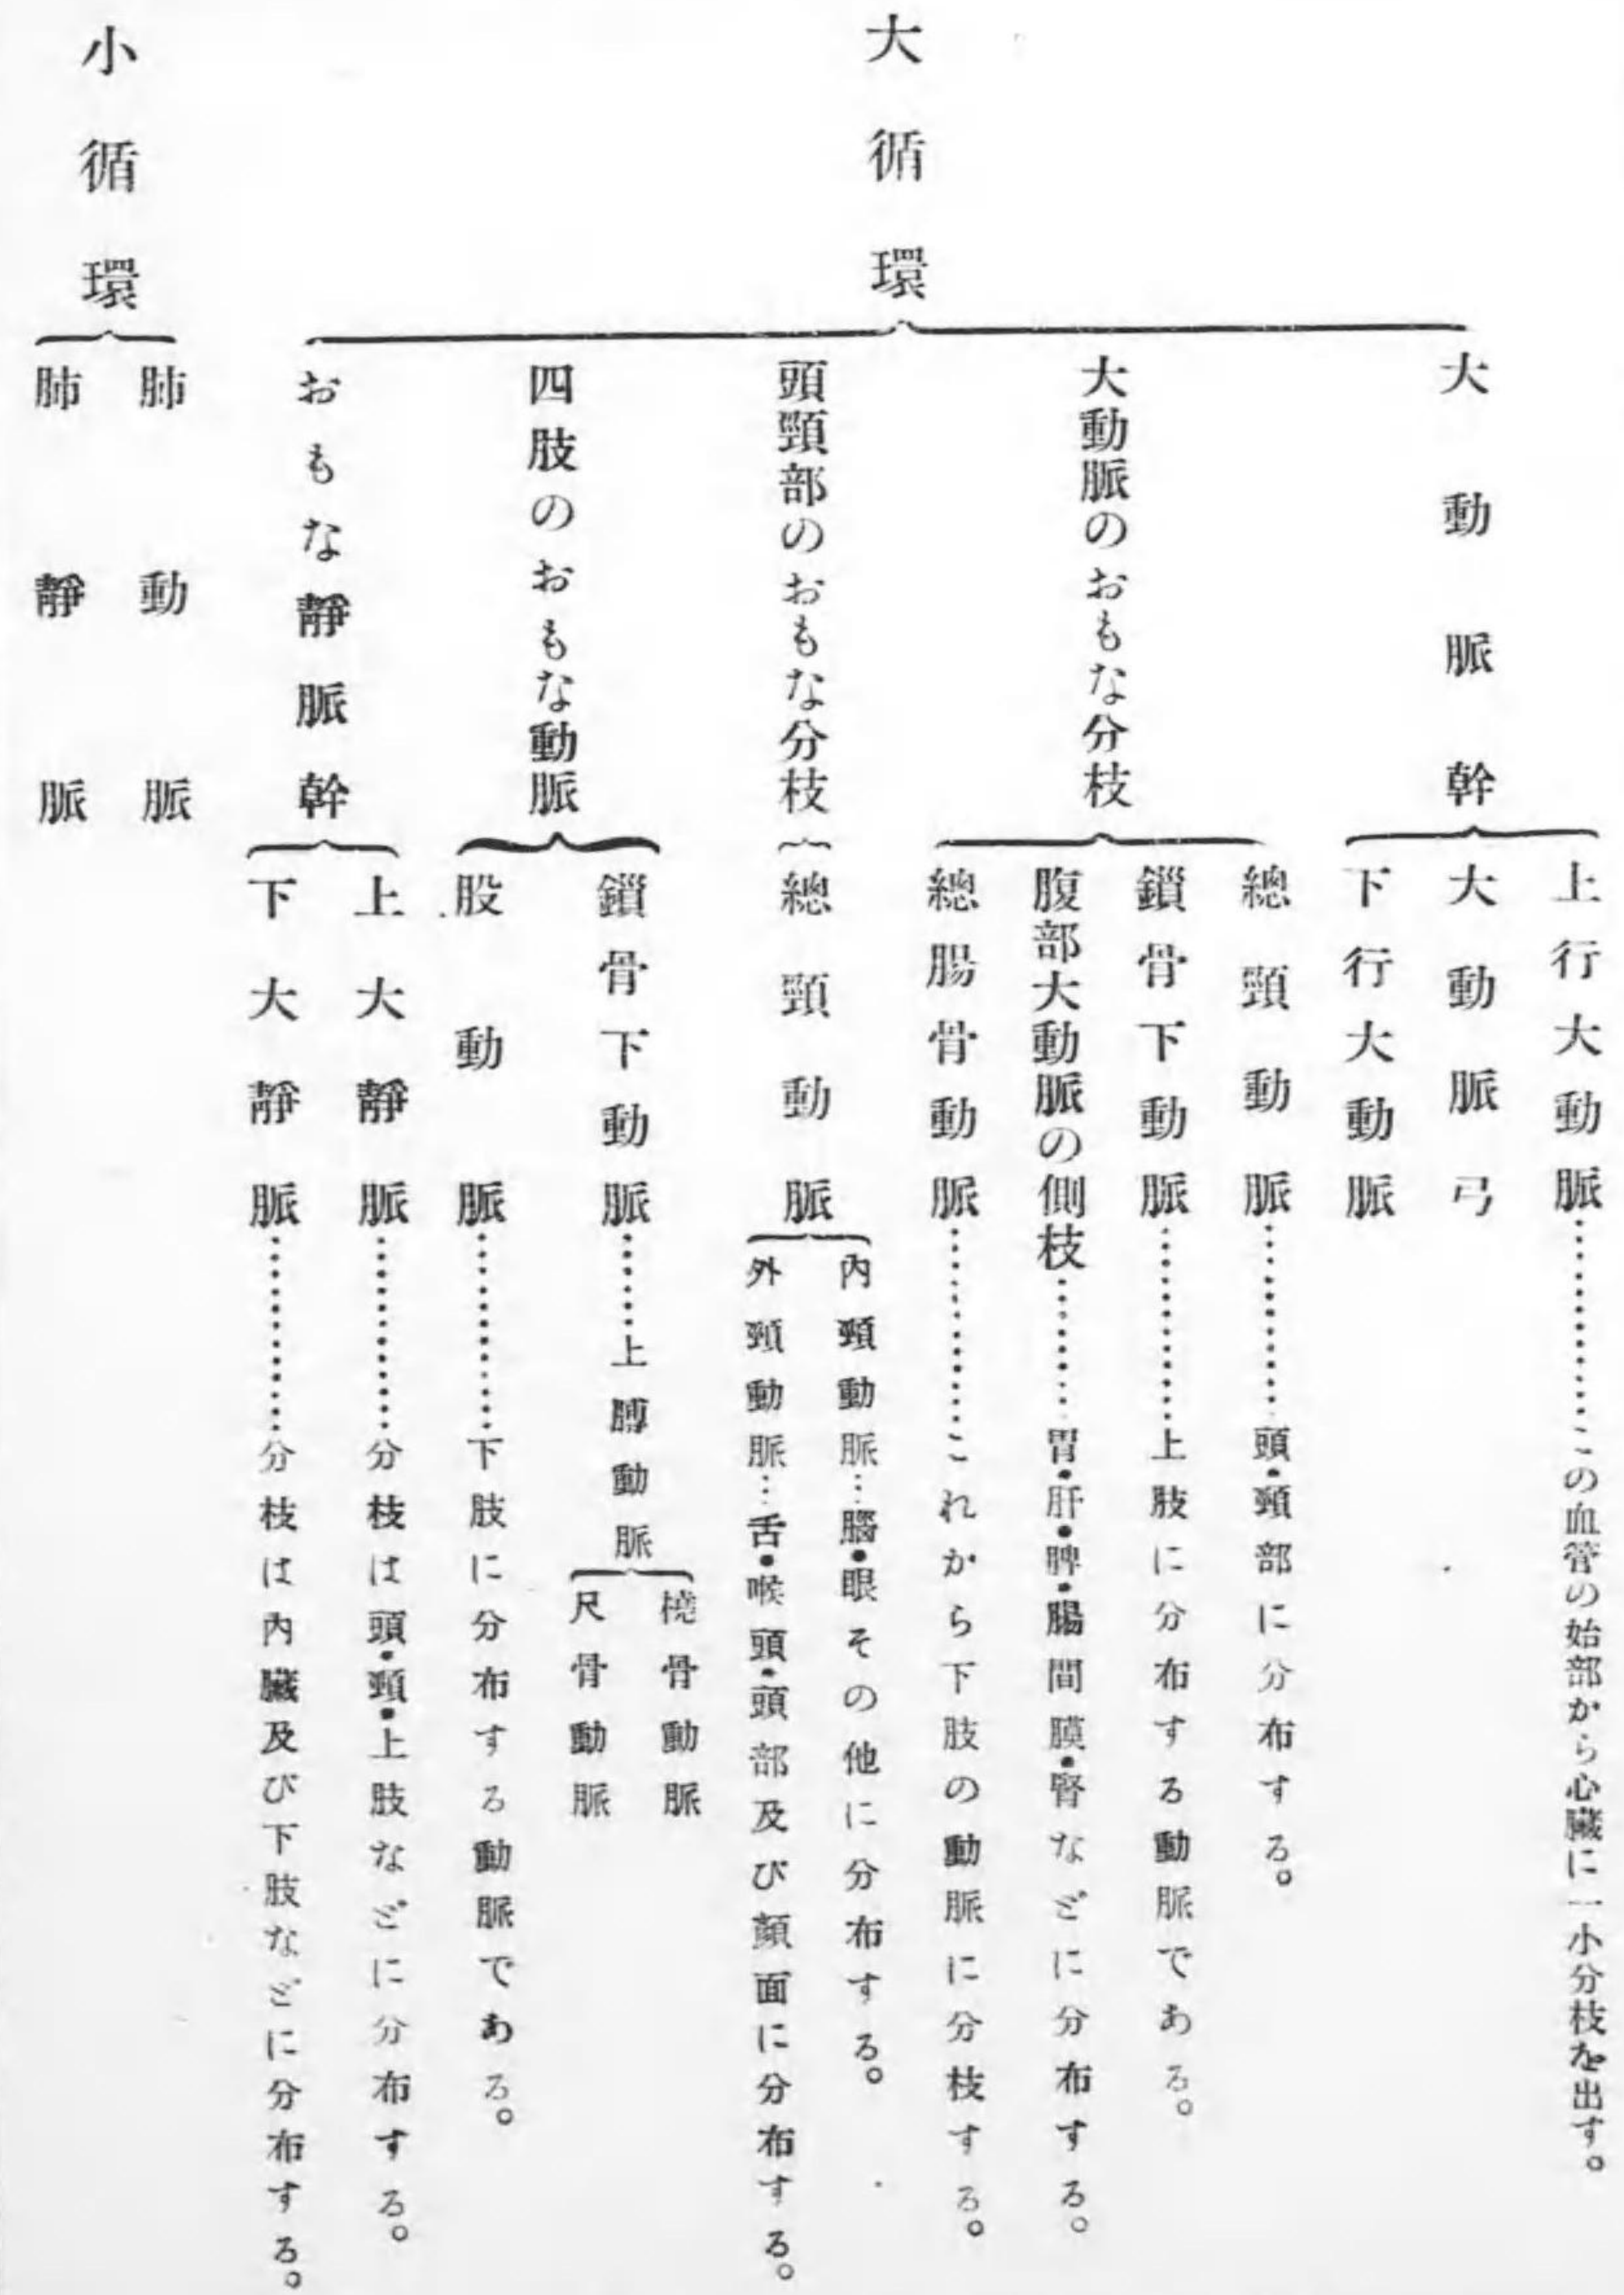 大循環
大動脈幹
上行大動脈…………この血管の始部から心臟に一小分枝を出す。
大動脈弓
下行大動脈
大動脈のおもな分枝
總頸動脈…………頭・頸部に分布する。
鎖骨下動脈…………上肢に分布する動脈である。
腹部大動脈の側枝………胃・肝・脾・腸間膜・腎などに分布する。
總腸骨動脈…………これから下肢の動脈に分枝する。
頭頸部のおもな分枝
總頸動脈
內頸動脈…腦・眼その他に分布する。
外頸動脈…舌・喉頭・頭部及び顏面に分布する。
四肢のおもな動脈
鎖骨下動脈……上膊動脈
橈骨動脈
尺骨動脈
股動脈…………下肢に分布する動脈である。
おもな靜脈幹
上大靜脈…………分枝は頭・頸・上肢などに分布する。
下大靜脈…………分枝は內臟及び下肢などに分布する。
小循環
肺動脈
肺靜脈